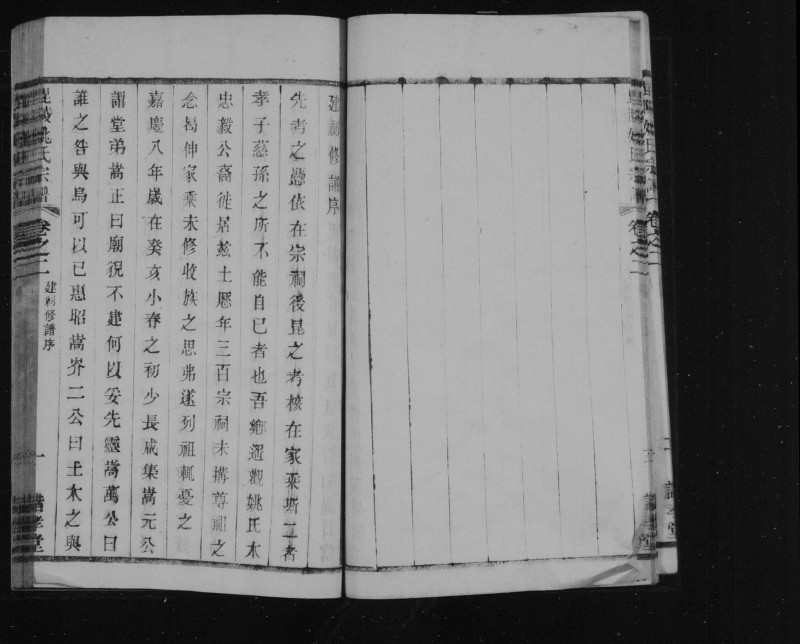 建祠修譜序
先考之憑依在宗祠後昆之考核在家乘斯二者
孝子慈孫之所不能自已者也吾鄉遥觀姚氏木
忠毅公裔徙居玆土歷年三百宗祠未搆尊祖之
念曷伸家乘未修收族之思弗遂列祖輒憂之
嘉慶八年歲在癸亥小春之初少長咸集嵩元公
謂堂弟嵩正曰廟祝不建何以妥先靈嵩萬公曰
誰之咎與烏可以已惠昭嵩岕二公曰土木之與
毘陵姚氏宗譜
卷之二
建祠修譜序
一
諎孝堂
毘陵姚氏宗譜
卷之二